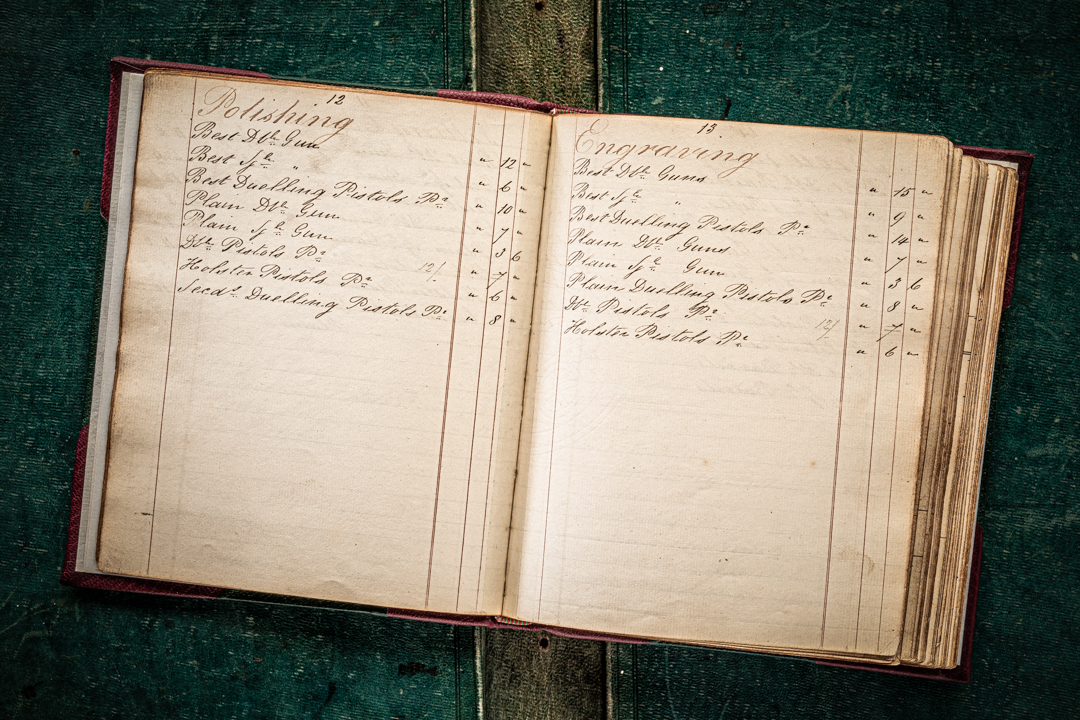 12
Polishing
Best Dble Gun " 12 "
Best Sle " " 6 "
Best Duelling Pistols Pr " 10 "
Plain Dble Gun " 7 "
Plain Sle Gun " 3 6
Dble Pistols Pr 12/ " 7 "
Holster Pistols Pr " 6 "
Secd. Duelling Pistols Pr " 8 "
13
Engraving
Best Dble Guns " 15 "
Best Sle " " 9 "
Best Duelling Pistols Pr " 14 "
Plain Dble Guns " 7 "
Plain Sle Gun " 3 6
Plain Duelling Pistols Pr " 8 "
Dble Pistols Pr 12/ " 7 "
Holster Pistols Pr " 6 "